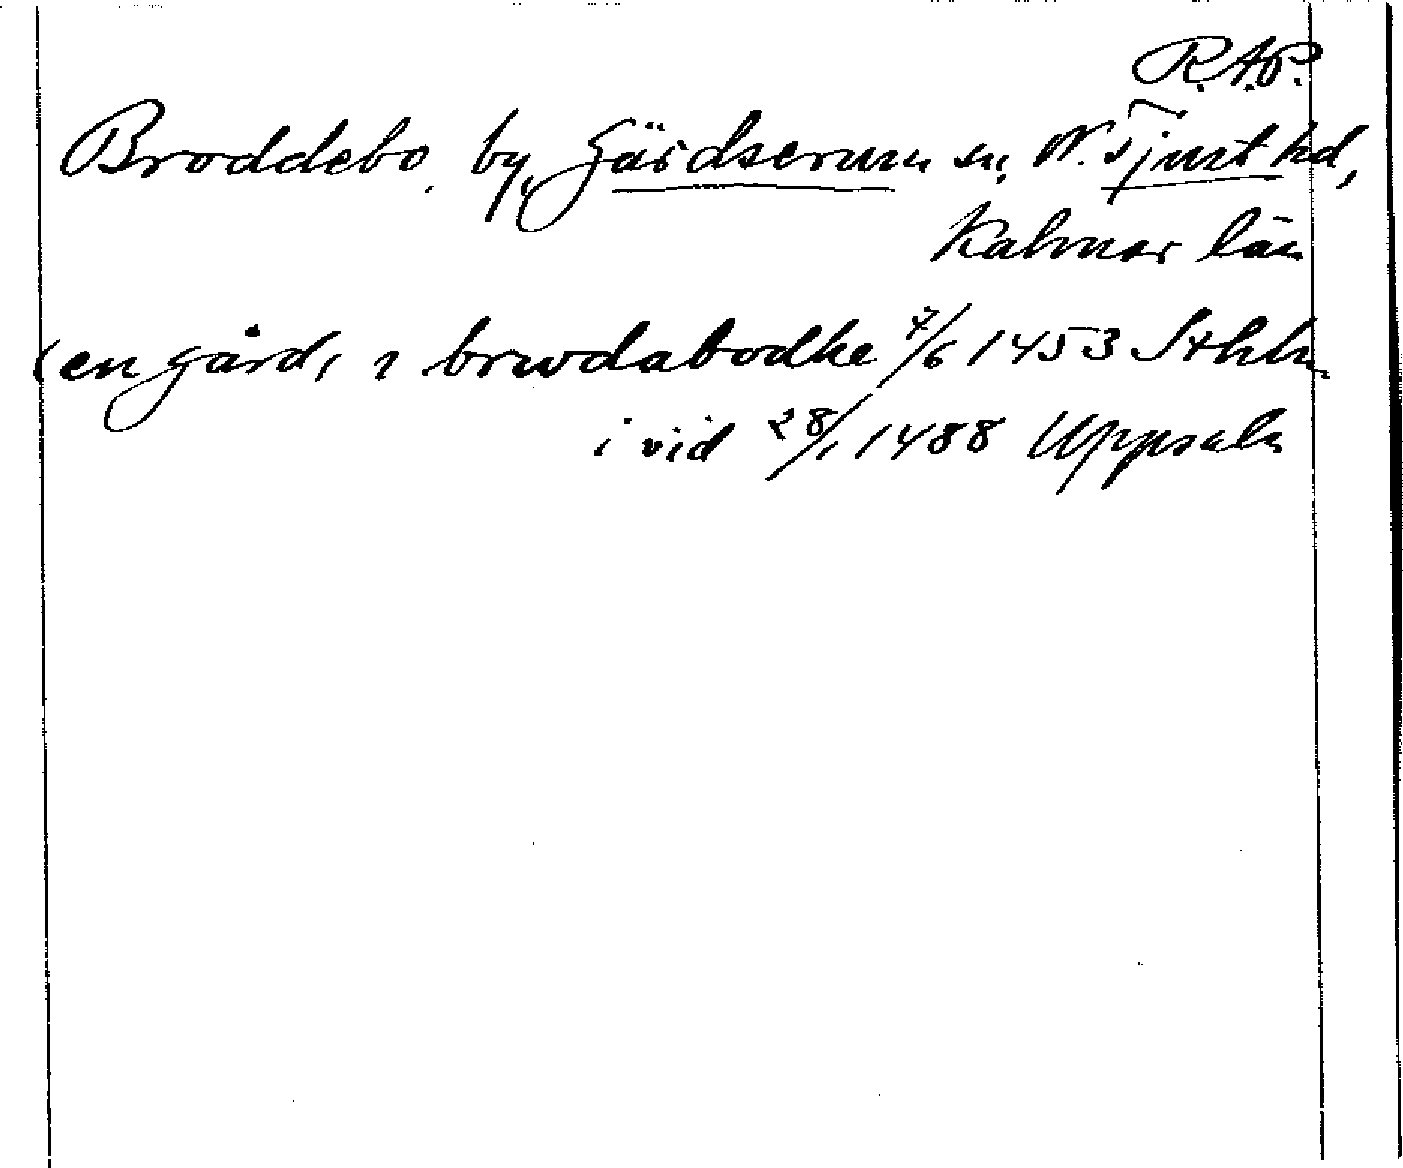 R.A.P.
Broddebo, by, Gärdserum sn, N. Tjust hd,
Kalmar län
(en gård) i brwdabodhe 7/6 1453 Sthlm
i vid 28/1 1488 Uppsala